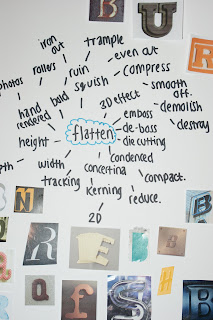 B
U
R
iron
out
trample
rollers
even out
photos
ruin
compress
squish
bald
smooth
off.
hand
rendered
3D effect
demolish
emboss
destroy
height
flatten
de-boss
die cutting
condensed
width
concertina
compact.
tracking
kerning
reduce.
2D
N
R
R
E
B
B
a
f
S
H
B
B